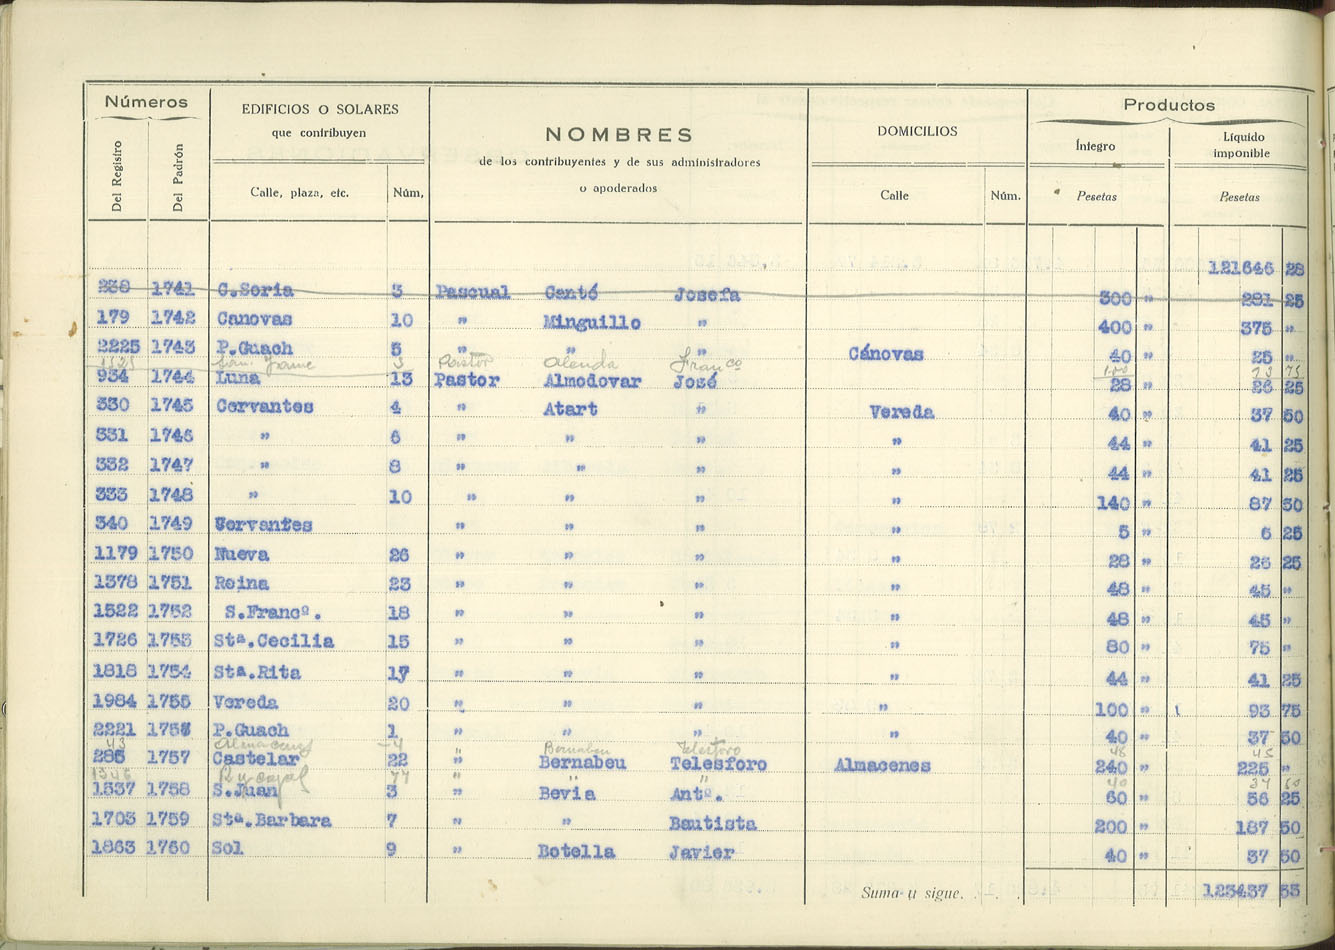 Números
EDIFICIOS O SOLARES
que contribuyen
NOMBRES
de los contribuyentes y de sus administradores
o apoderados
DOMICILIOS
Productos
Íntegro
Líquido
imponible
Del Registro
Del Padrón
Calle, plaza, etc.
Núm,
Calle
Núm.
Pesetas
Pesetas
121646 28
238 1741 C.Soria 3 Pascual Cantó Josefa 300 " 281 25
179 1742 Canovas 10 " Minguillo " 400 " 375 "
2225 1743 P.Guach 5 " " " Cánovas 40 " 25 "
1525 San Jaime 3 Pastor Alenda Franco 100 93 75
934 1744 Luna 13 Pastor Almodovar José 28 " 26 25
330 1745 Cervantes 4 " Atart " Vereda 40 " 37 50
331 1746 " 6 " " " " 44 " 41 25
332 1747 " 8 " " " " 44 " 41 25
333 1748 " 10 " " " " 140 " 87 50
340 1749 Cervantes " " " " 5 " 6 25
1179 1750 Nueva 26 " " " " 28 " 26 25
1378 1751 Reina 23 " " " " 48 " 45 "
1522 1752 S.Francº. 18 " " " " 48 " 45 "
1726 1753 Stª.Cecilia 15 " " " " 80 " 75 "
1818 1754 Stª.Rita 17 " " " " 44 " 41 25
1984 1755 Vereda 20 " " " " 100 " 93 75
2221 1756 P.Guach 1 " " " " 40 " 37 50
43 Almacenes 4 " Bernabeu Telesforo 48 45
286 1757 Castelar 22 " Bernabeu Telesforo Almacenes 240 " 225 "
1346 77 " " " 40 37 50
1537 1758 S.Juan 3 " Bevia Antº. 60 " 56 25
1703 1759 Stª.Barbara 7 " " Bautista 200 " 187 50
1863 1760 Sol 9 " Botella Javier 40 " 37 50
Suma y sigue. . . . 123437 53